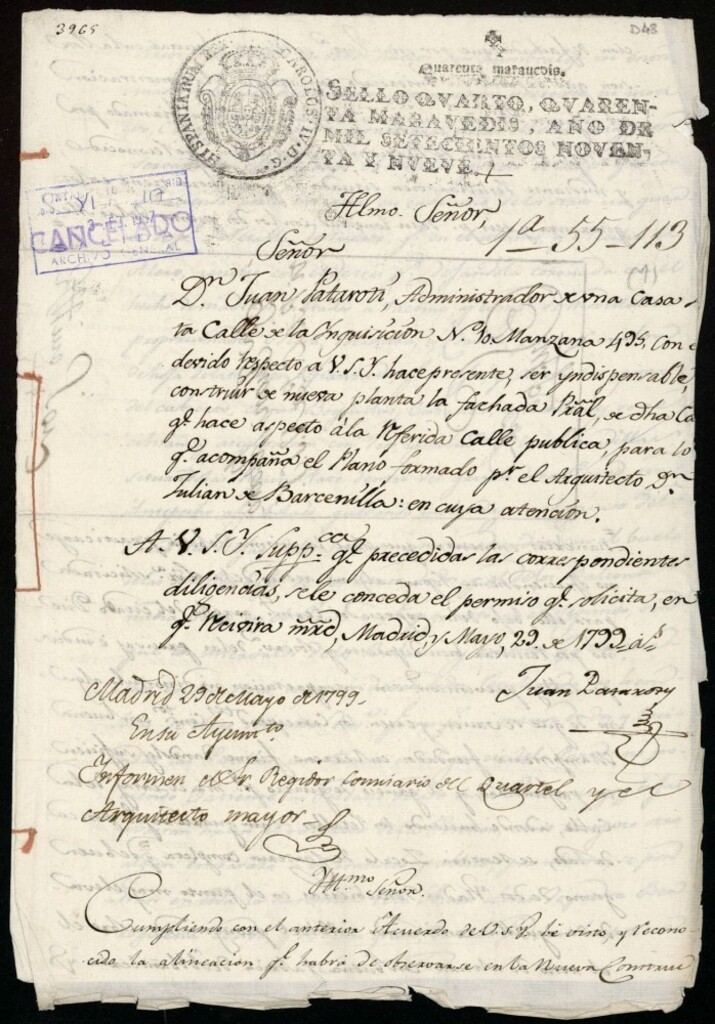 3965
D48
HISPANIARUM REX CAROLUS IV D. G.
Quarenta maravedis.
SELLO QVARTO, QVAREN-
TA MARAVEDIS, AÑO DE
MIL SETECIENTOS NOVEN-
TA Y NUEVE.
CANCELADO
ARCHIVO GENERAL
Yllmo. Señor,
1a 55-113
(1)
Señor
Dn. Juan Pataroti, Administrador de una Casa
ta Calle de la Ynquisicion N.º 10 Manzana 495, con
devido respecto a V.S.Y. hace presente, ser yndispensable,
construir de nueva planta la fachada Pral, de dha Ca
qe. hace aspecto á la referida Calle publica, para lo
qe. acompaña el Plano formado pr. el Arquitecto Dn.
Julian de Barcenilla: en cuya atencion.
A. V. S. Y. Suppca. qe. precedidas las correspondientes
diligencias, se le conceda el permiso qe. solicita, en
qe. Recivira mrd, Madrid y Mayo, 29. de 1799 as
Juan Pataroty
Madrid 29 de Mayo de 1799.
En su Ayuntto
Informen el Sr. Regidor Comisario del Quartel y el
Arquitecto mayor
Yllmo Señor.
Cumpliendo con el anterior Acuerdo de V.S.Y. he visto, y recono
cido la alineacion qe. habrá de observarse en la Nueva Construc